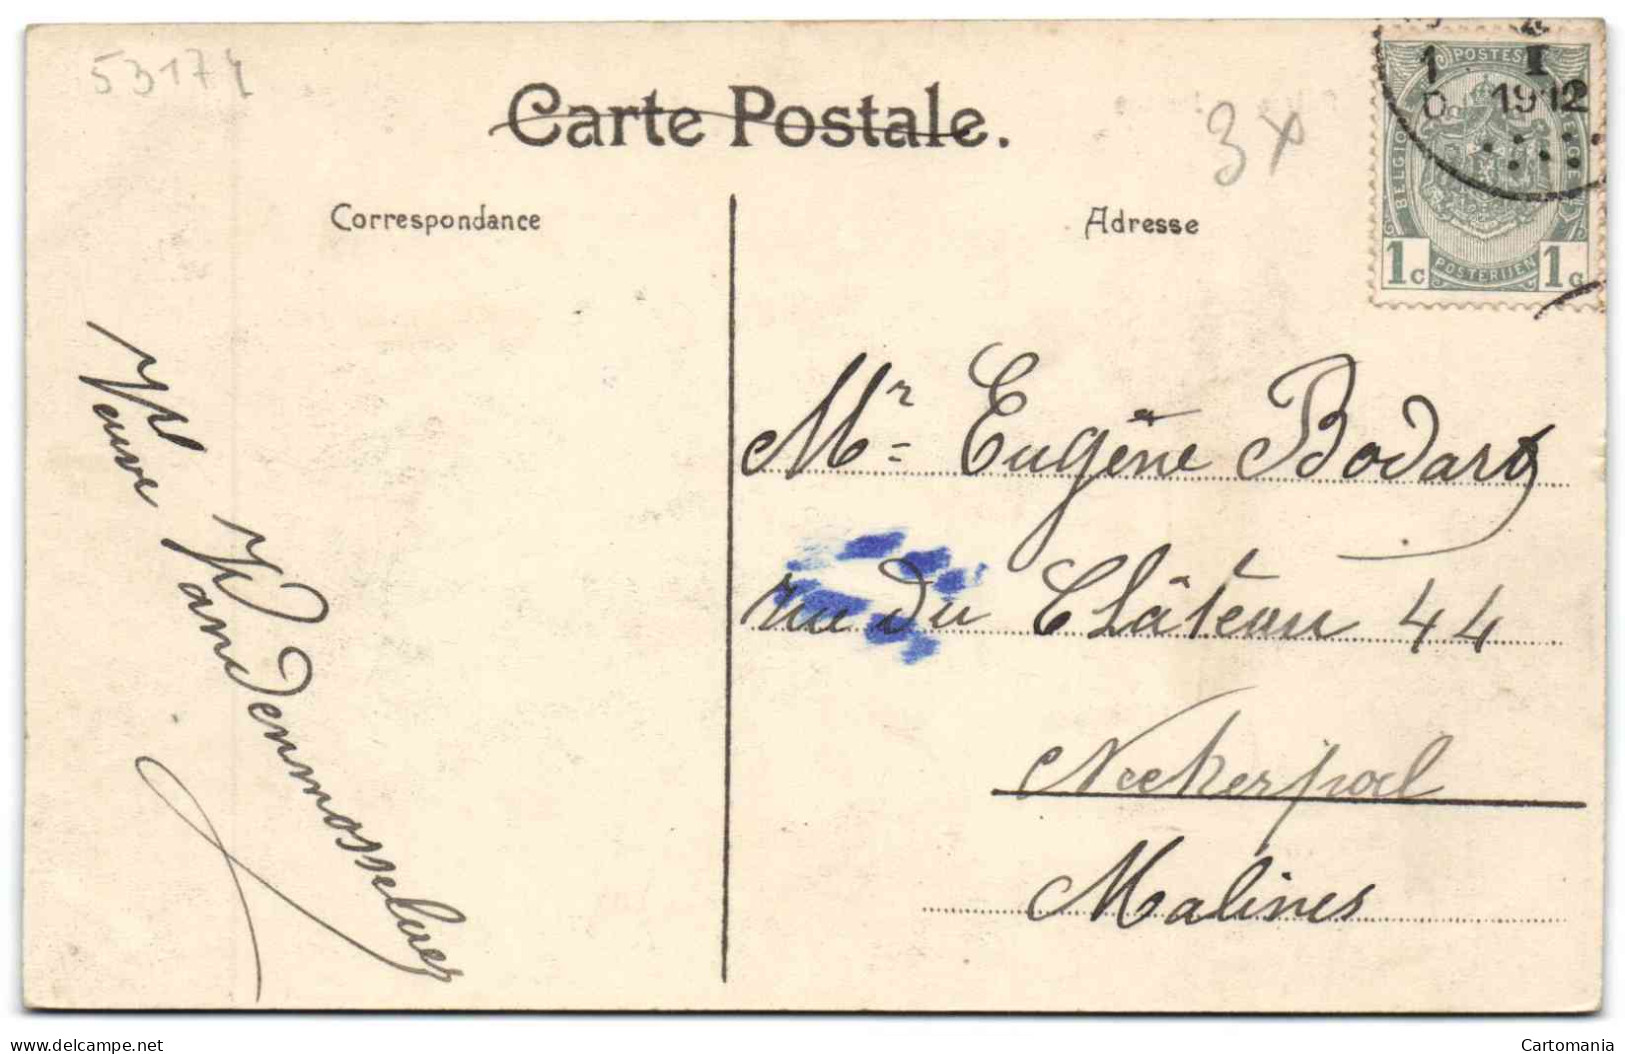 53174
Carte Postale.
3x
1 I
1912
POSTES
BELGIQ
GE
1c POSTERIJEN 1c
Correspondance
Adresse
Veuve Vandenmosselaer
Mr Eugène Bodart
rue du Château 44
Neckerpoel
Malines
www.delcampe.net
Cartomania